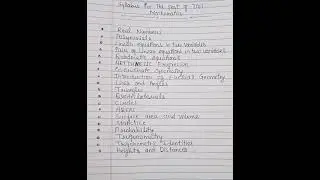 Syllabus for the post of TGT
Mathematics
Real Numbers
Polynomials
Linear equations in two variables
Pair of Linear equations in two variables
Quadratic equations
Arithmetic Progression
Co-ordinate Geometry
Introduction of Euclid's Geometry
Lines and Angles
Triangles
Quadrilaterals
Circles
Areas
Surface area and volume
Statistics
Probability
Trigonometry
Trigonometric Identities
Heights and Distances